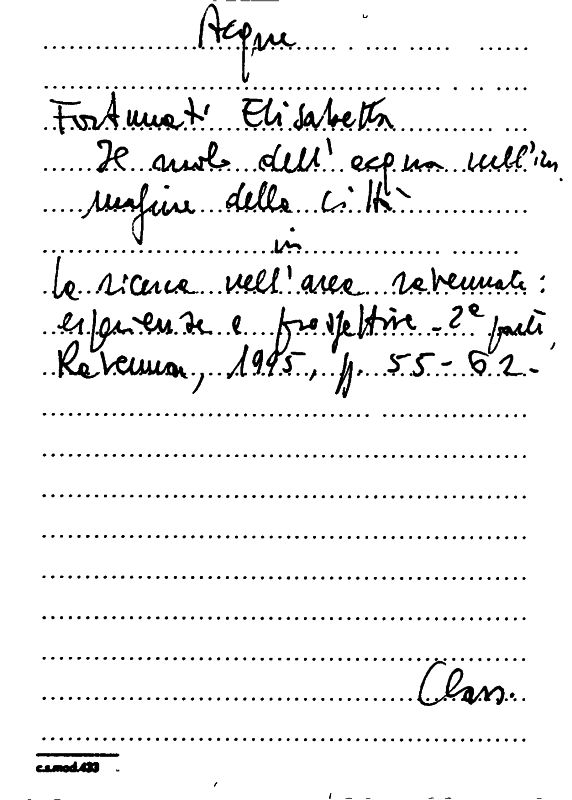 Acque
Fortunati Elisabetta
Il ruolo dell'acqua nell'im
magine della città
in
La ricerca nell'area ravennate:
esperienze e prospettive - 2ª parte,
Ravenna, 1995, pp. 55-62.
Class.
c.s.mod.433